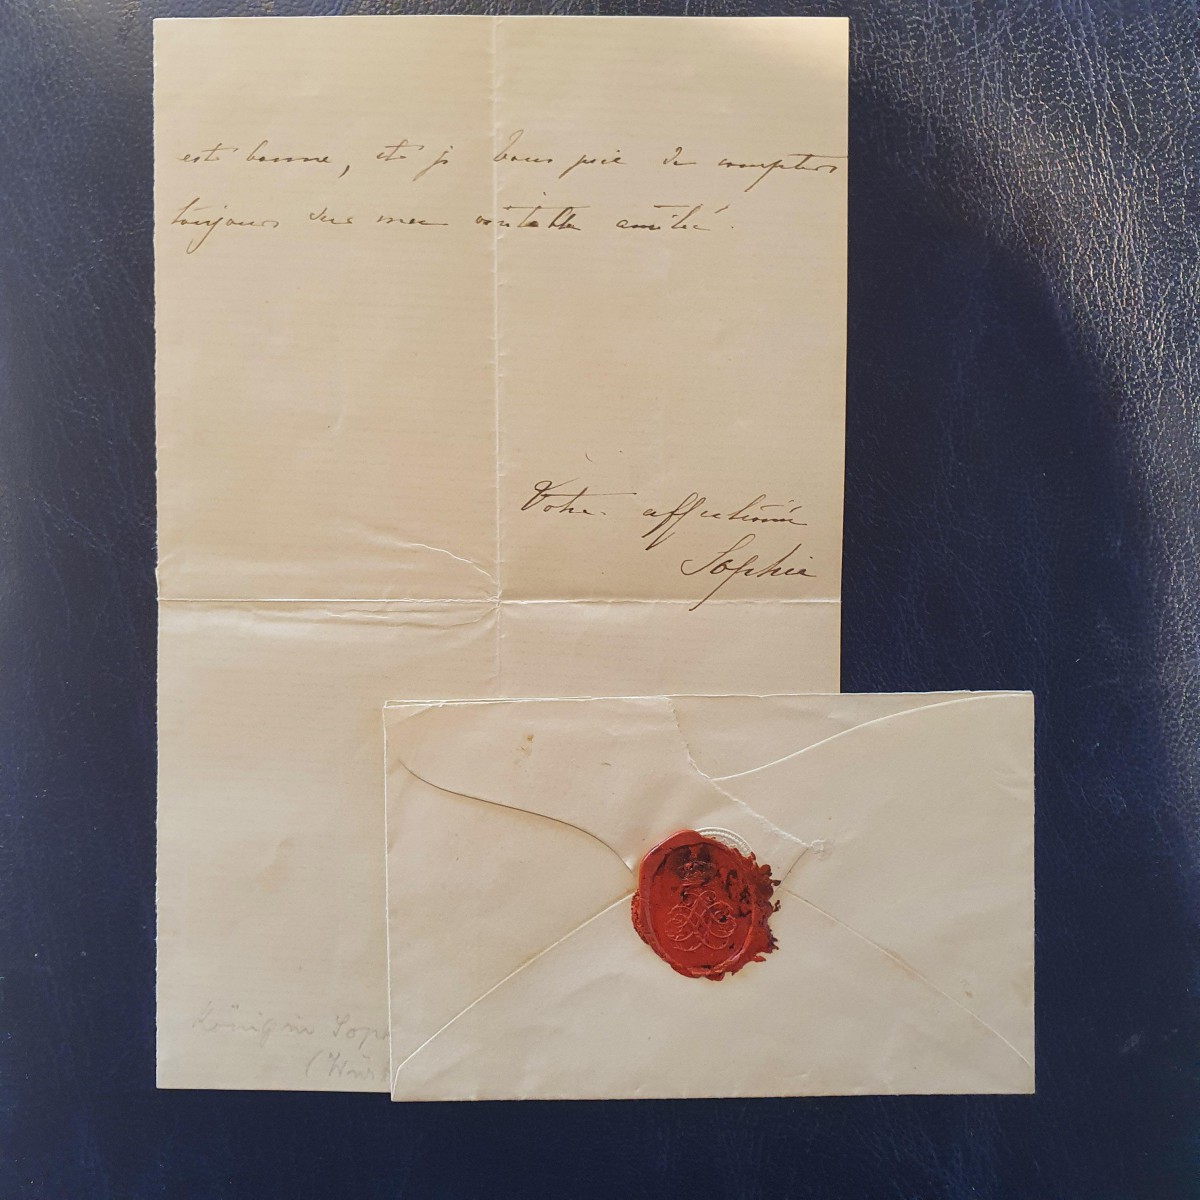 est bonne, et je vous prie de compter
toujours sur mon véritable amitié.
Votre affectionnée
Sophie
Königin Sop
(Würt